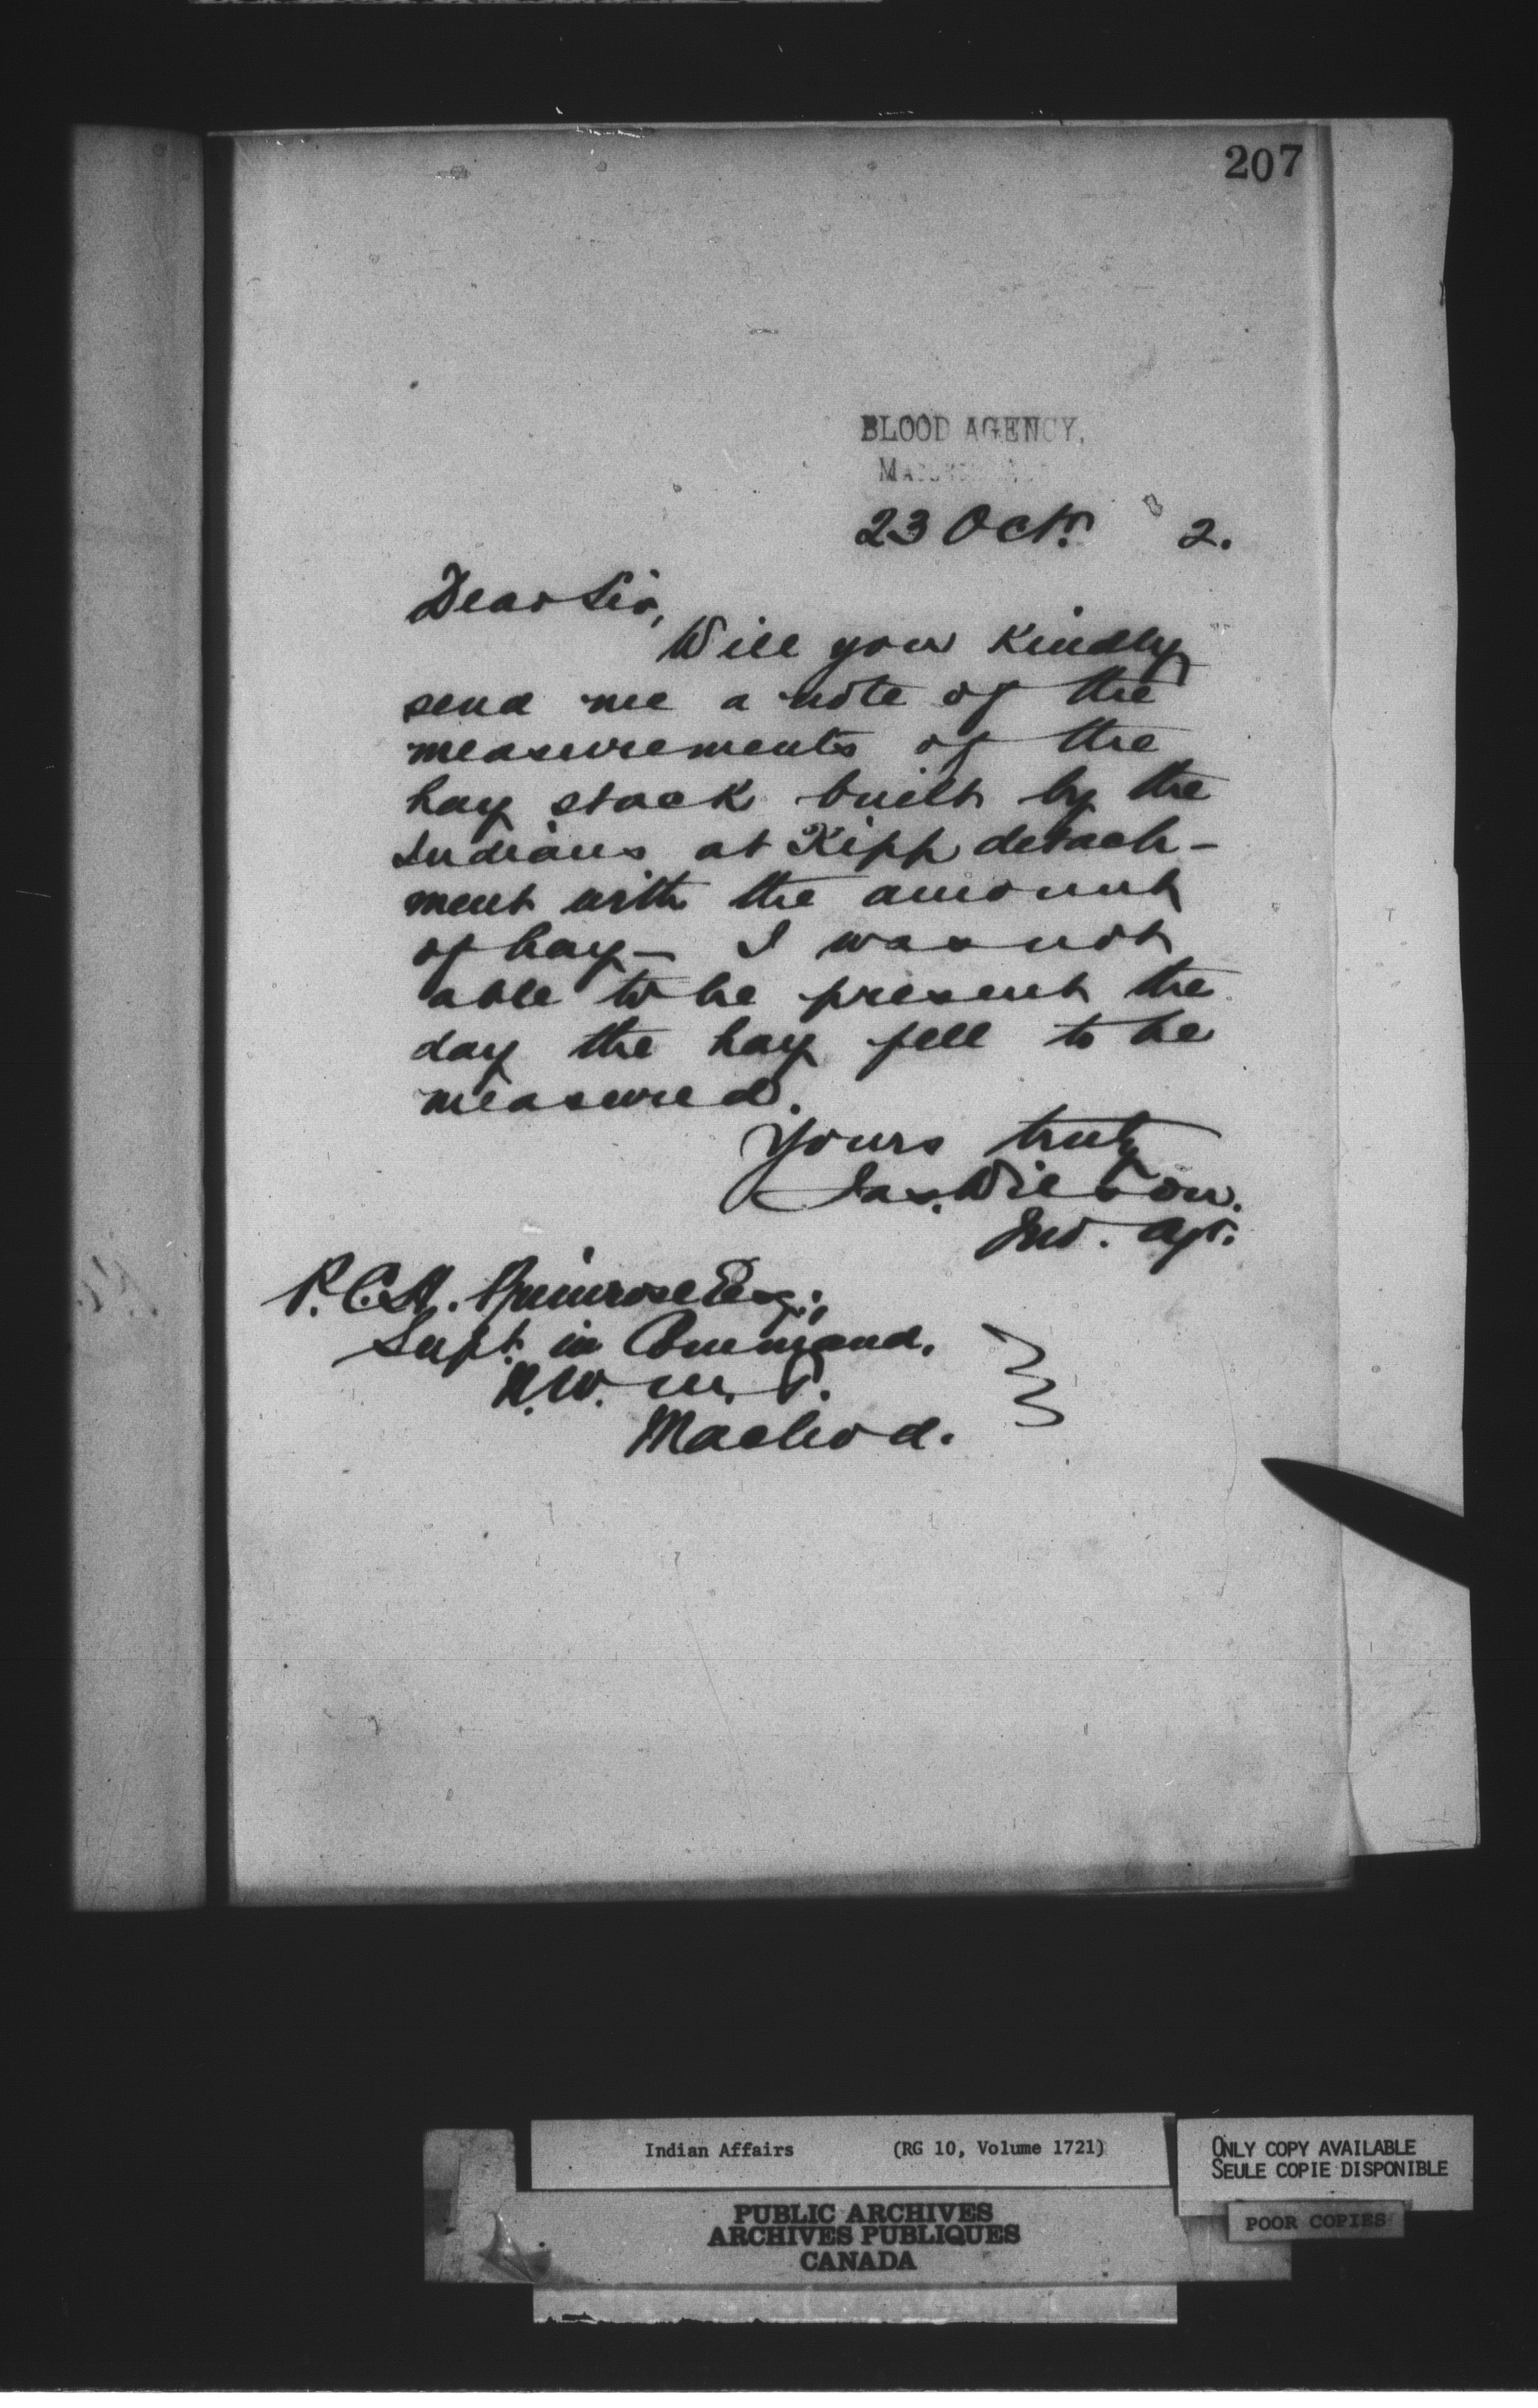 207
BLOOD AGENCY,
23 Octr. 2.
Dear Sir,
Will you Kindly
send me a note of the
measurements of the
hay stack built by the
Indians at Kipp detach-
ment with the amount
of hay — I was not
able to be present the
day the hay fell to be
measured.
Yours truly
Jas. Wilson.
Ind. Agt.
P. C. H. Primrose Esq.,
Supt. in Command.
N. W. M. P.
Macleod.
Indian Affairs (RG 10, Volume 1721)
ONLY COPY AVAILABLE
SEULE COPIE DISPONIBLE
POOR COPIES
PUBLIC ARCHIVES
ARCHIVES PUBLIQUES
CANADA